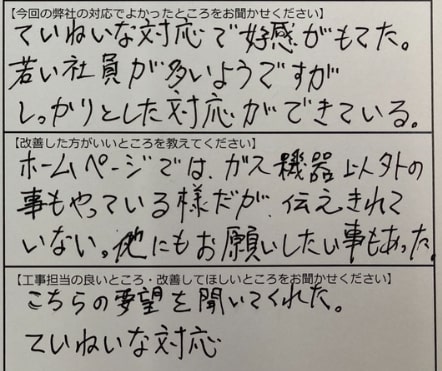 【今回の弊社の対応でよかったところをお聞かせください】
ていねいな対応で好感がもてた。
若い社員が多いようですが
しっかりとした対応ができている。
【改善した方がいいところを教えてください】
ホームページでは、ガス機器以外の
事もやっている様だが、伝えきれて
いない。他にもお願いしたい事もあった。
【工事担当の良いところ・改善してほしいところをお聞かせください】
こちらの要望を聞いてくれた。
ていねいな対応